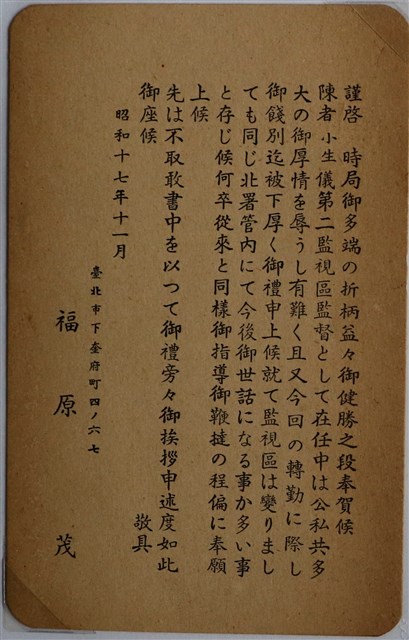 謹啓　時局御多端の折柄益々御健勝之段奉賀候
陳者小生儀第二監視區監督として在任中は公私共多
大の御厚情を辱うし有難く且又今回の轉勤に際し
御餞別迄被下厚く御禮申上候就て監視區は變りまし
ても同じ北署管內にて今後御世話になる事か多い事
と存じ候何卒從來と同樣御指導御鞭撻の程偏に奉願
上候
先は不取敢書中を以つて御禮旁々御挨拶申述度如此
御座候　敬具
昭和十七年十一月
臺北市下奎府町四ノ六七
福原　茂